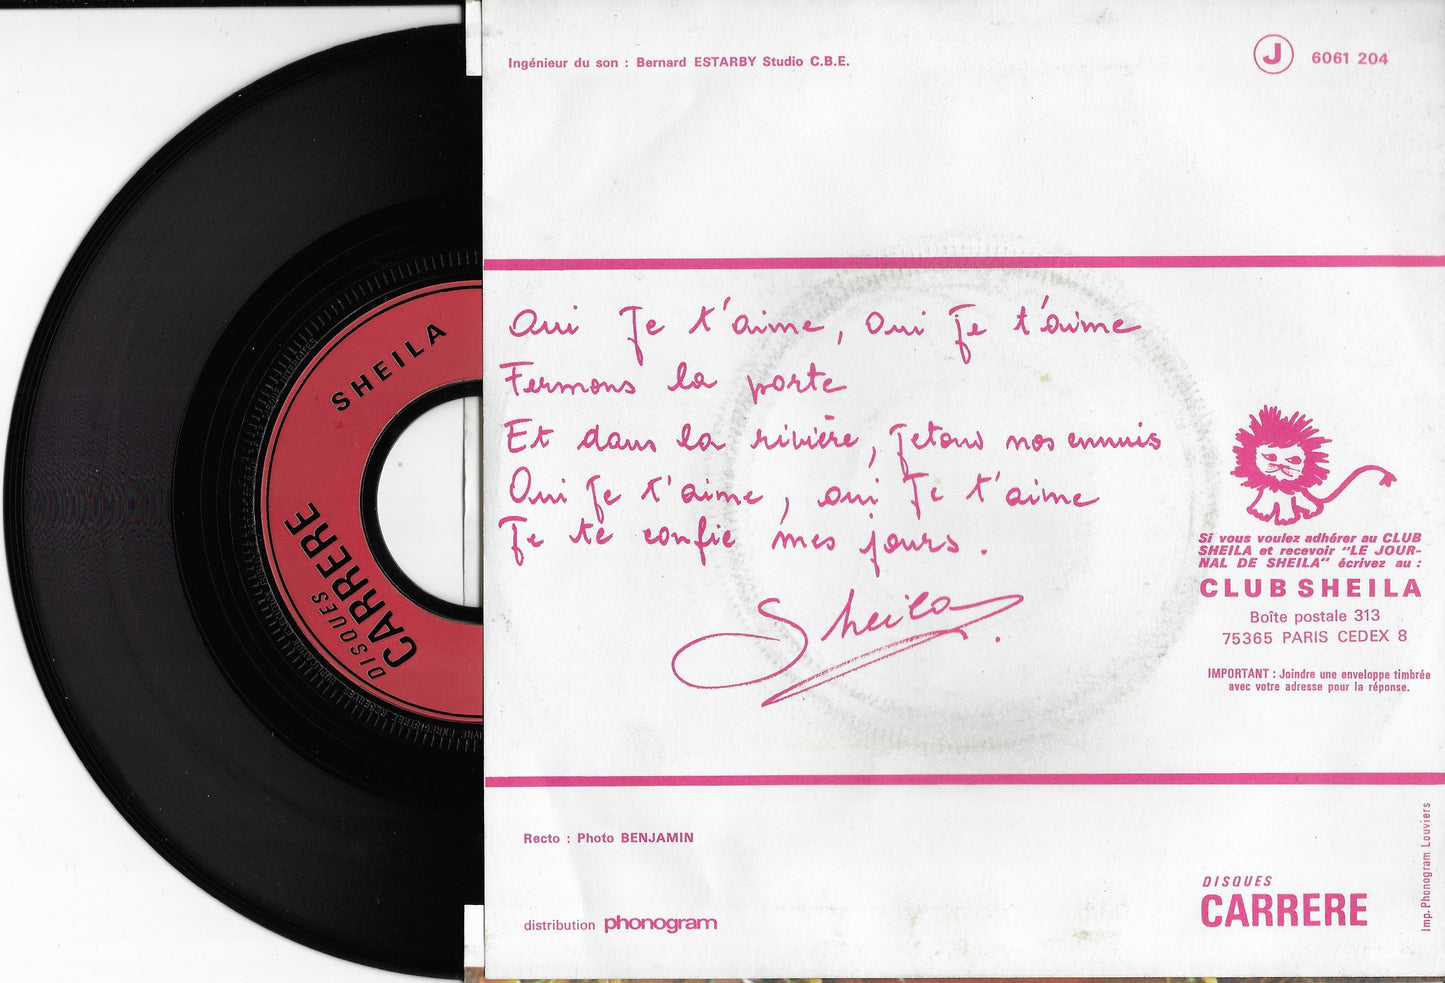 Ingénieur du son : Bernard ESTARBY Studio C.B.E.
J 6061 204
Oui Je t'aime, Oui Je t'aime
Fermons la porte
Et dans la rivière, Jetons nos ennuis
Oui Je t'aime, oui Je t'aime
Je te confie mes jours.
Sheila
Si vous voulez adhérer au CLUB
SHEILA et recevoir "LE JOUR-
NAL DE SHEILA" écrivez au :
CLUB SHEILA
Boîte postale 313
75365 PARIS CEDEX 8
IMPORTANT : Joindre une enveloppe timbrée
avec votre adresse pour la réponse.
Recto : Photo BENJAMIN
distribution phonogram
DISQUES
CARRERE
Imp. Phonogram Louviers
SHEILA
DISQUES
CARRERE